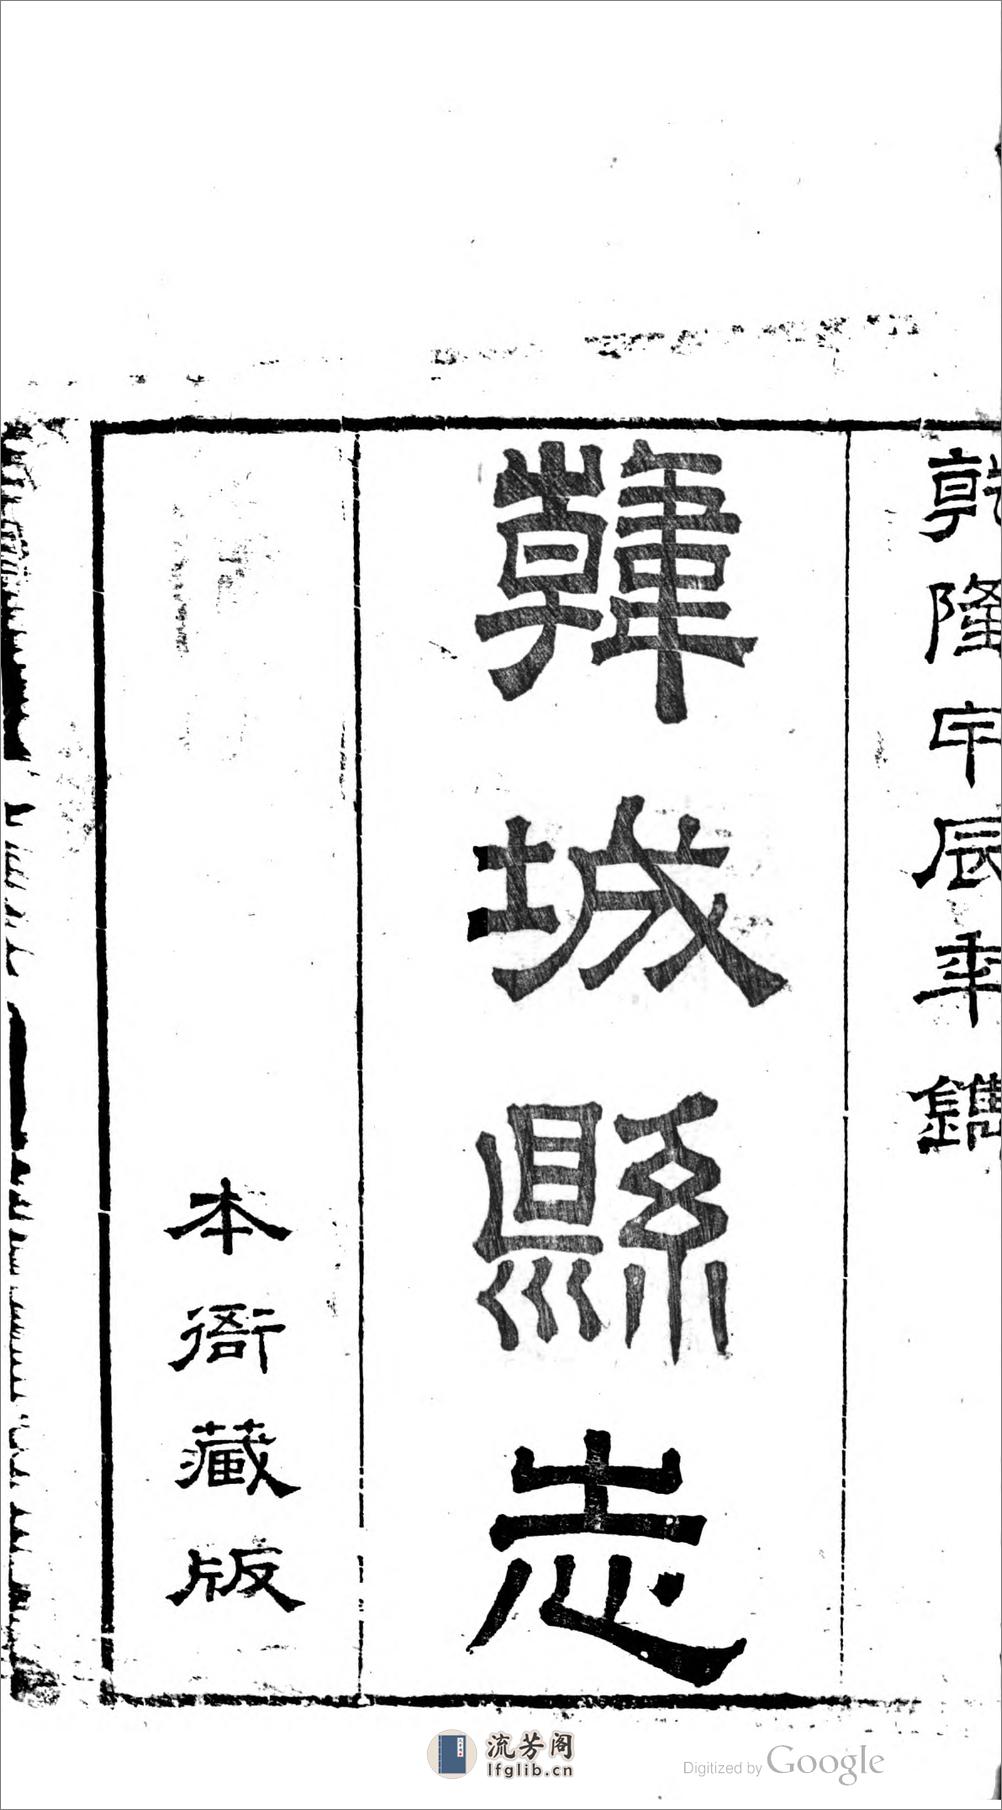 乾隆甲辰年鐫
韓城縣志
本衙藏版
流芳阁
lfglib.cn
Digitized by Google